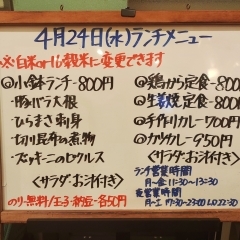 4月24日(水)ランチメニュー
※白米or16穀米に変更できます
◎小鉢ランチ-800円
・豚バラ大根
・ひらまさ刺身
・切り昆布の煮物
・ズッキーニのピクルス
〈サラダ・お汁付き〉
のり-無料/玉子・納豆-各50円
◎鶏から定食-800円
◎生姜焼定食-800円
◎手作りカレー-700円
◎カツカレー-950円
〈サラダ・お汁付き〉
ランチ営業時間
月~金 11:30~13:30
夜営業時間
月~土 17:30~23:00